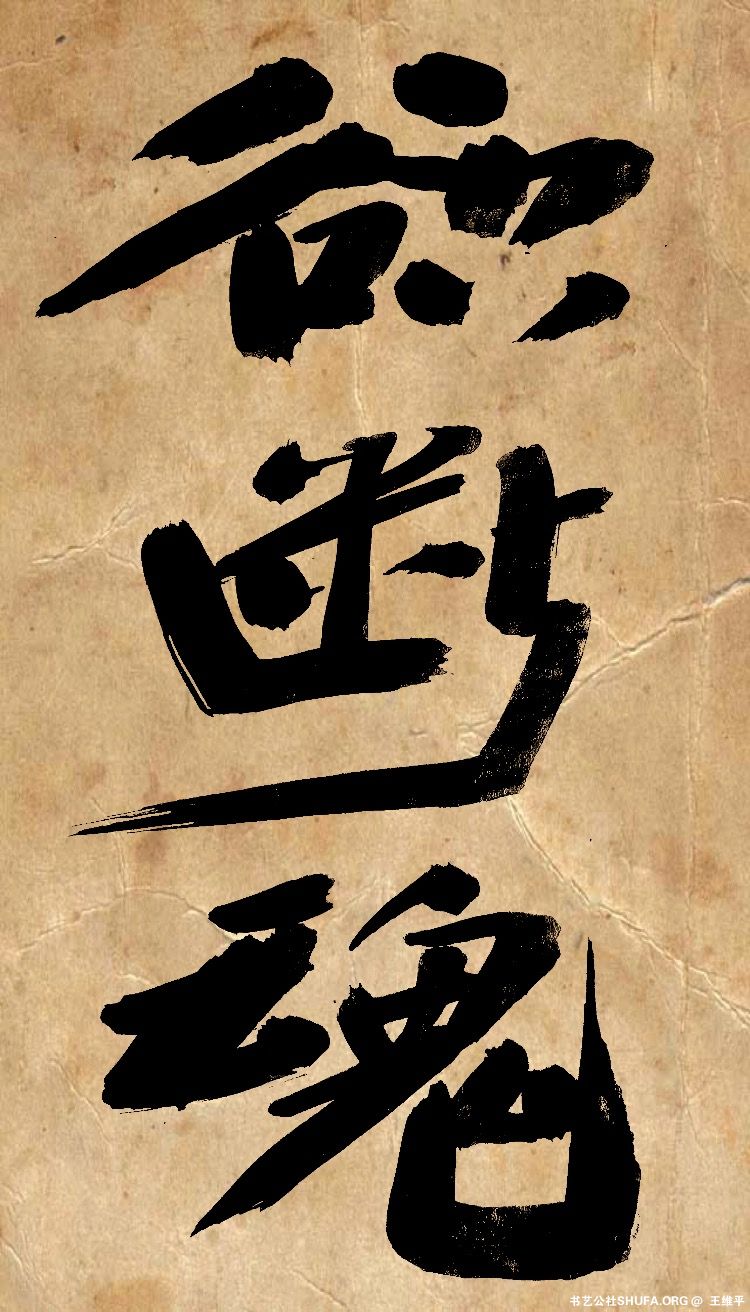 欲断魂
书艺公社SHUFA.ORG @ 王维平